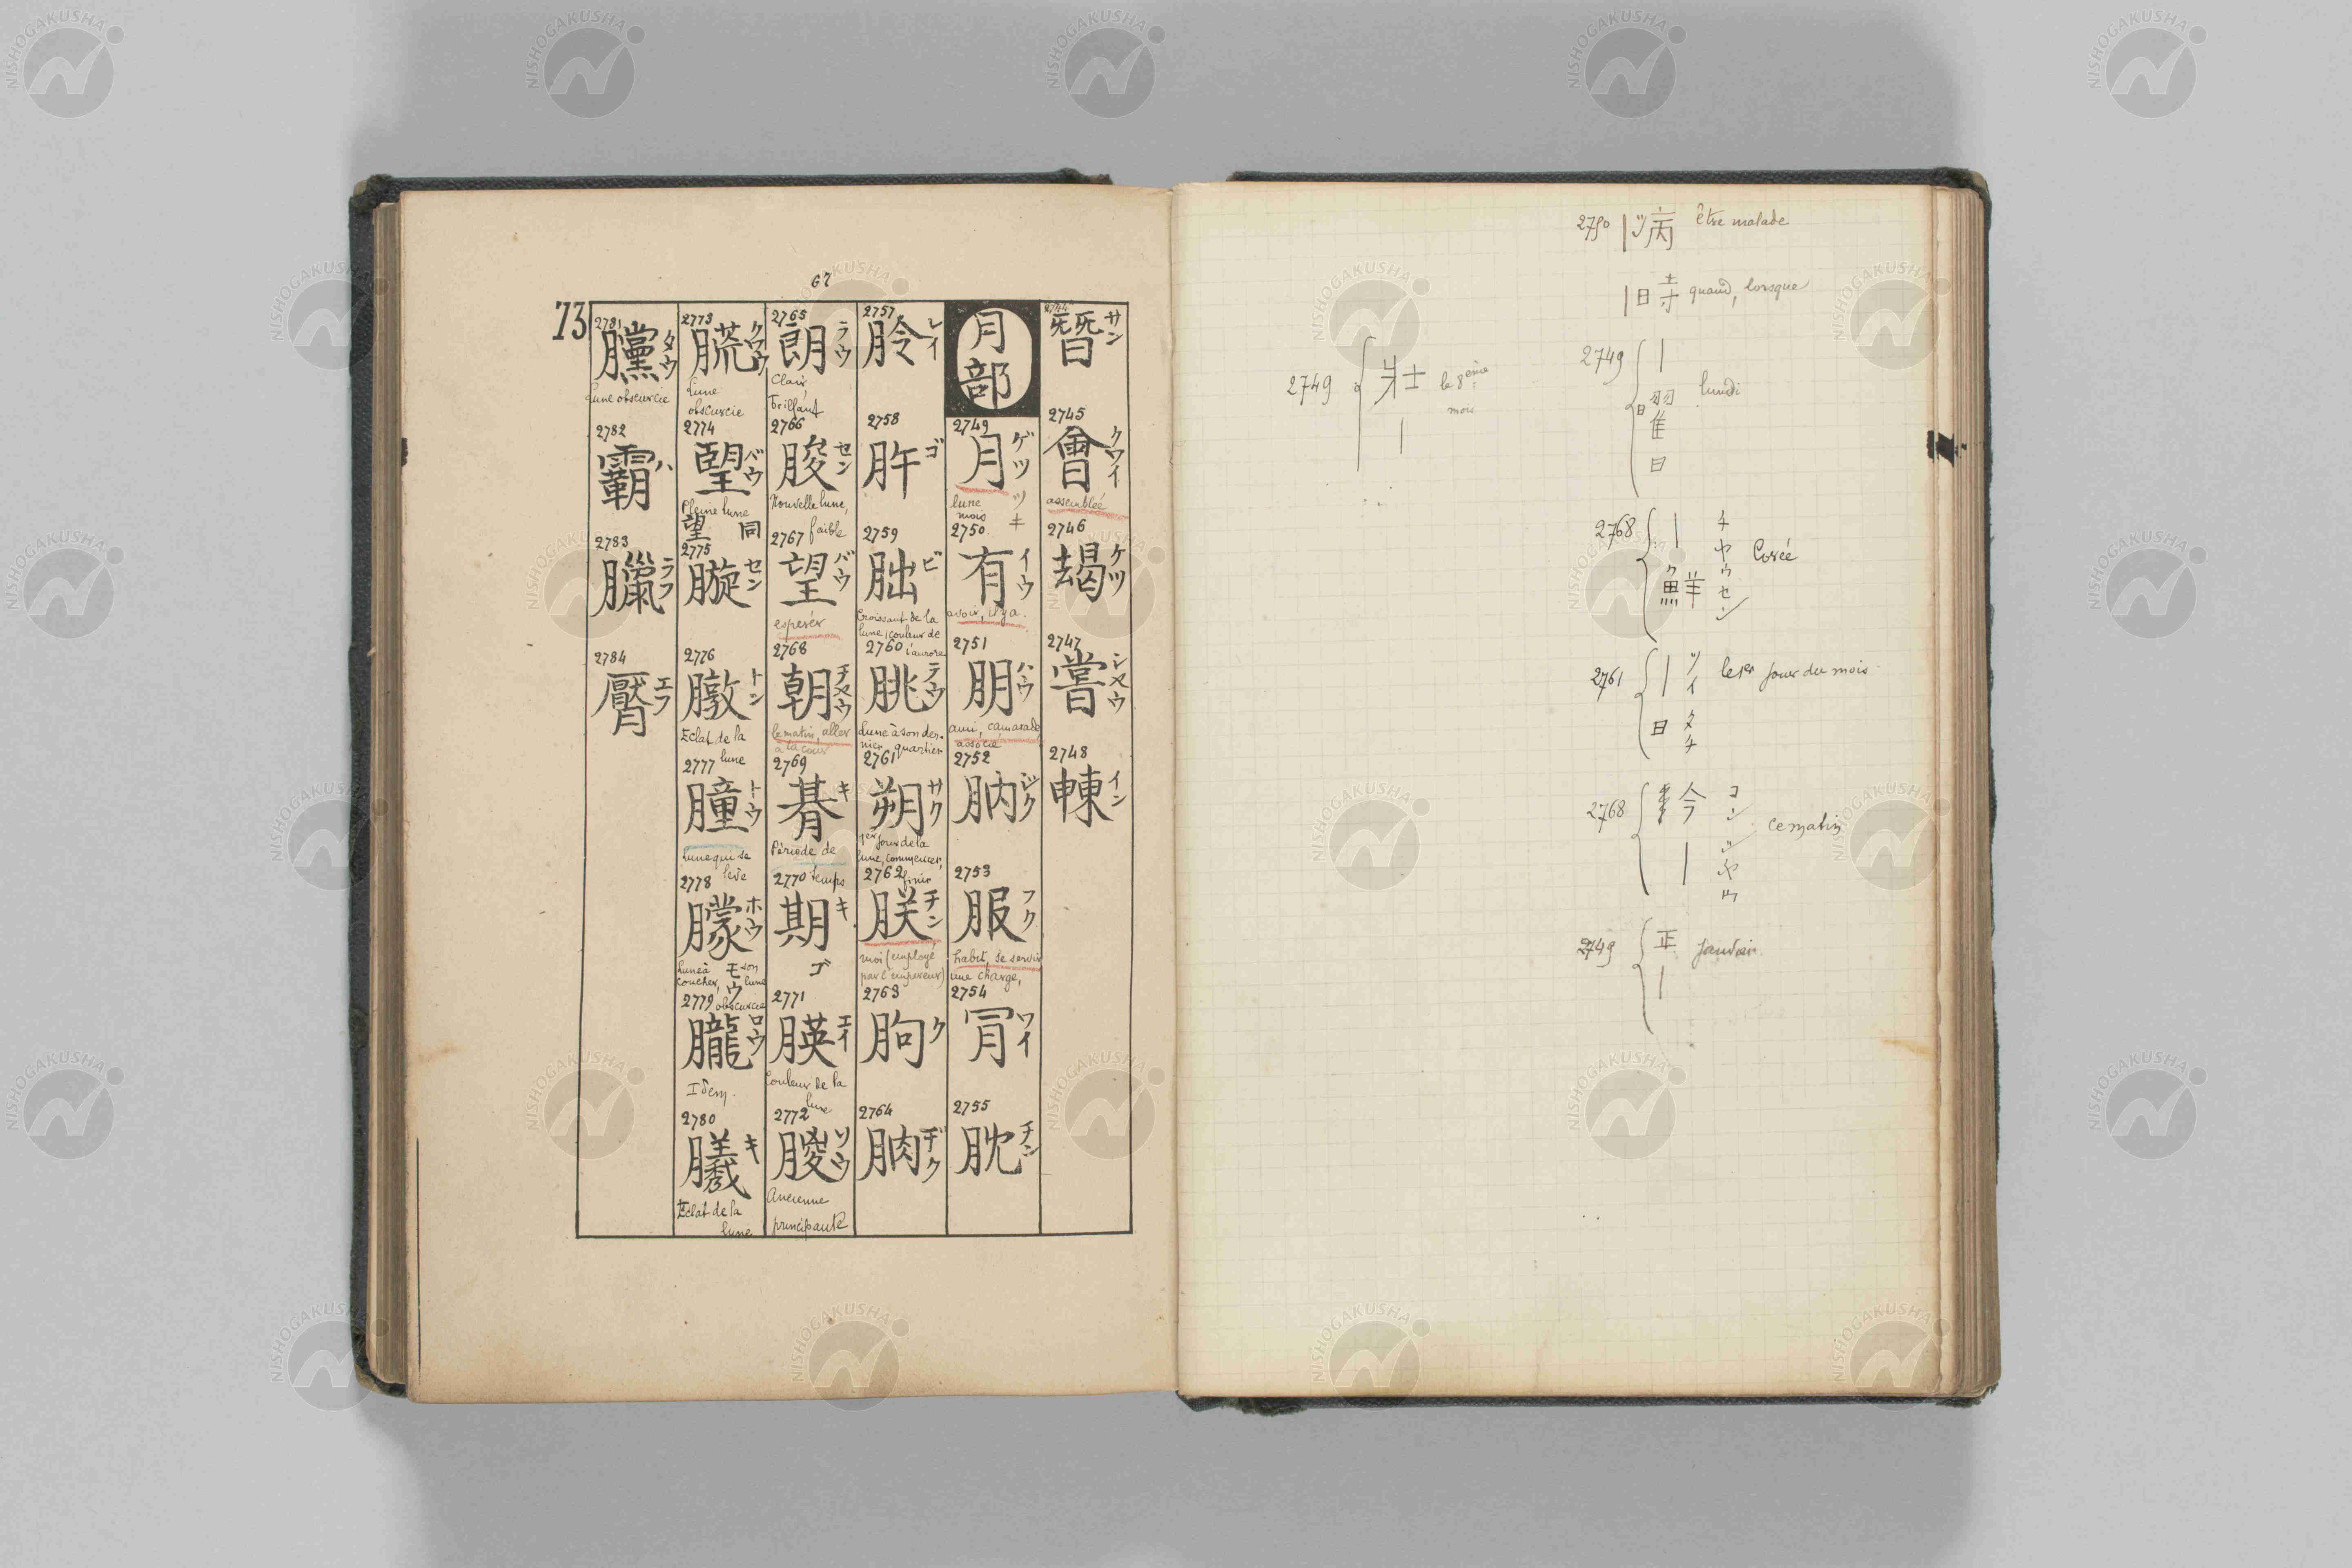 67
73
2744
サン
2745
會
クワイ
assemblée
2746
朅
ケツ
2747
嘗
シヤウ
2748
朄
イン
月部
2749
月
ゲツ
ツキ
lune
mois
2750
有
イウ
avoir, il y a.
2751
朋
ハウ
ami, camarade
associé
2752
朒
ジク
2753
服
フク
habit, se servir
une charge,
2754
ワイ
2755
チン
2757
朎
レイ
2758
ゴ
2759
朏
ビ
Croissant de la
lune, couleur de
l'aurore
2760
朓
テウ
Lune à son der-
nier quartier
2761
朔
サク
1er jour de la
lune, commencer,
finir
2762
朕
チン
moi (employé
par l'empereur)
2763
朐
ク
2764
ヂク
2765
朗
ラウ
Clair,
brillant
2766
朘
セン
Nouvelle lune,
faible
2767
望
バウ
espérer
2768
朝
チヤウ
le matin, aller
à la cour
2769
朞
キ
Période de
temps
2770
期
キ
ゴ
2771
朠
エイ
Couleur de la
lune
2772
朡
ソウ
Ancienne
principauté
2773
クワウ
Lune
obscurcie
2774
朢
バウ
Pleine lune
望 同
2775
セン
2776
トン
Eclat de la
lune
2777
朣
トウ
Lune qui se
lève
2778
朦
ホウ
モウ
Lune à son
coucher, lune
obscurcie
2779
朧
ロウ
Idem.
2780
キ
Eclat de la
lune
2781
タウ
Lune obscurcie
2782
霸
ハ
2783
臘
ラフ
2784
エフ
2750 | ッ病 être malade
| 時 quand, lorsque
2749 | 曜日 lundi
2768 | 鮮 チヤウセン Corée
2761 | 日 ツイタチ le 1er jour du mois
2768 今 | コンチヤウ ce matin
2749 正 | janvier
2749 壮 | le 8ème
mois